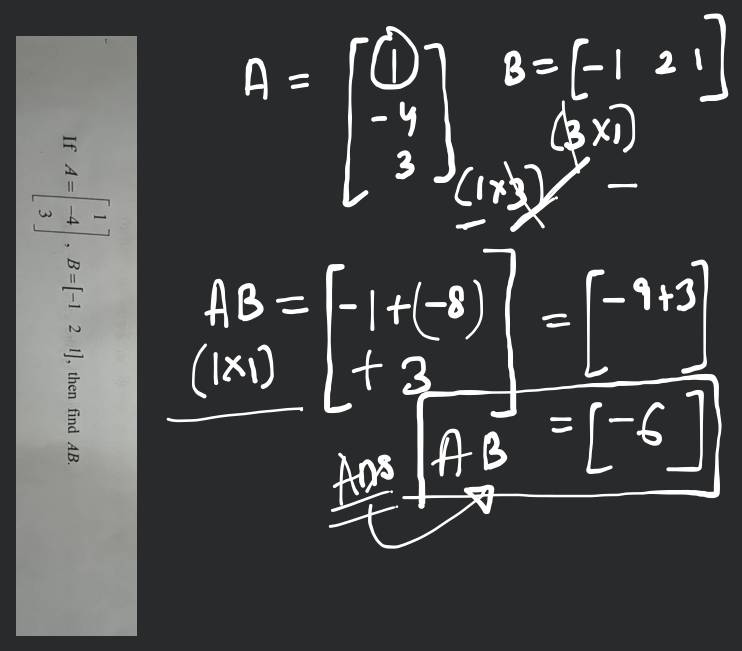 If A = [1 -4 3], B = [-1 2 1], then find AB.
A = [1 -4 3] B = [-1 2 1]
(1×3) (3×1)
AB = [-1+(-8) + 3] = [-9+3]
(1×1)
Ans AB = [-6]